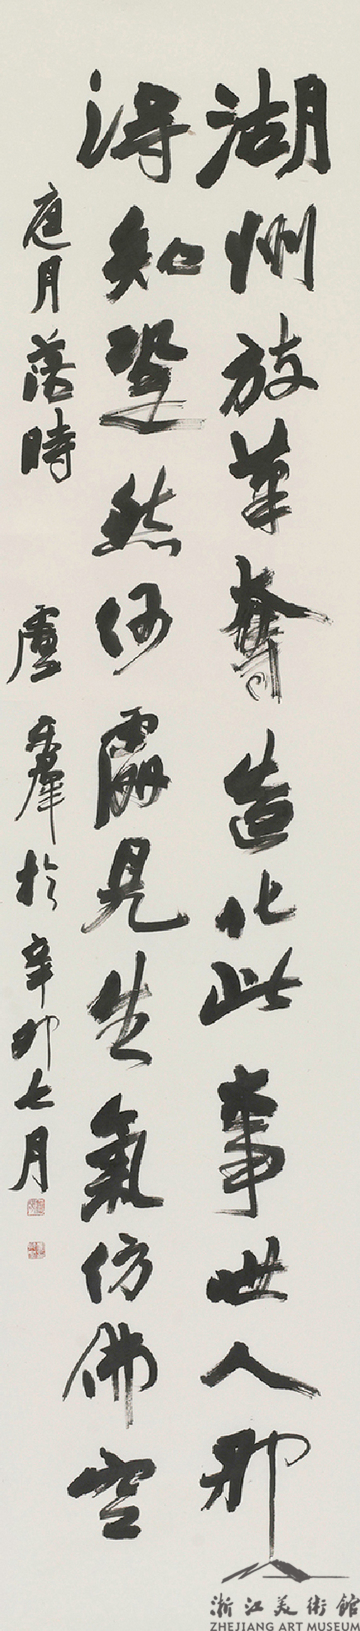 湖州放筆奪造化此事世人那
得知跫然何處見生氣仿佛空
庭月落時 盧乐羣於辛卯七月
浙江美術館
ZHEJIANG ART MUSEUM